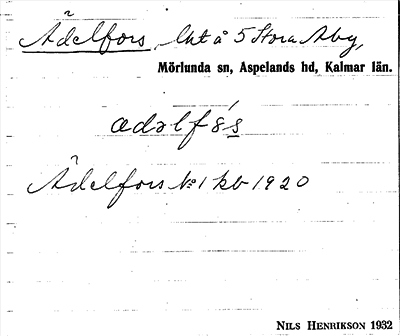 Ädelfors, lht å 5 Stora Aby,
Mörlunda sn, Aspelands hd, Kalmar län.
adəlfo̤ŕs
Ädelfors № 1 kb 1920
NILS HENRIKSON 1932